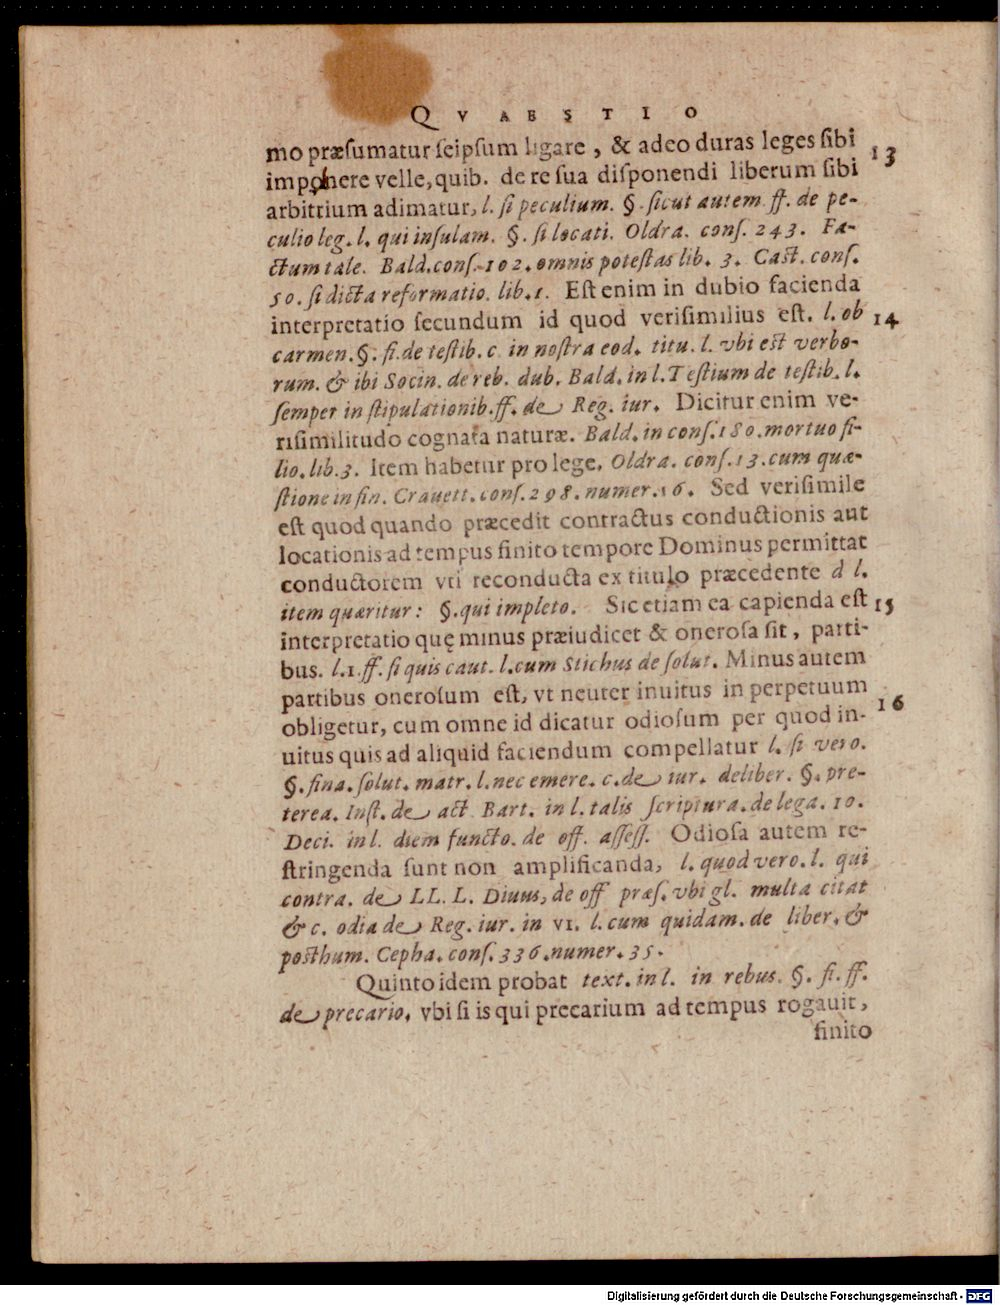 QVAESTIO
mo præſumatur ſeipſum ligare, & adeo duras leges ſibi 13
imponere velle, quib. de re ſua diſponendi liberum ſibi
arbitrium adimatur, l. ſi peculium. §. ſicut autem. ff. de pe-
culio leg. l. qui inſulam. §. ſi locati. Oldra. conſ. 243. Fa-
ctum tale. Bald. conſ. 102. omnis poteſtas lib. 3. Caſt. conſ.
50. ſi dicta reformatio. lib. 1. Eſt enim in dubio facienda
interpretatio ſecundum id quod veriſimilius eſt. l. ob 14
carmen. §. fi. de teſtib. c. in noſtra eod. titu. l. vbi eſt verbo-
rum. & ibi Socin. de reb. dub. Bald. in l. Teſtium de teſtib. l.
ſemper in ſtipulationib. ff. de Reg. iur. Dicitur enim ve-
riſimilitudo cognata naturæ. Bald. in conſ. 180. mortuo fi-
lio. lib. 3. Item habetur pro lege. Oldra. conſ. 13. cum quæ-
ſtione in fin. Crauett. conſ. 298. numer. 16. Sed veriſimile
eſt quod quando præcedit contractus conductionis aut
locationis ad tempus finito tempore Dominus permittat
conductorem vti reconducta ex titulo præcedente d l.
item quæritur: §. qui impleto. Sic etiam ea capienda eſt 15
interpretatio quę minus præiudicet & oneroſa ſit, parti-
bus. l. 1. ff. ſi quis caut. l. cum Stichus de ſolut. Minus autem
partibus oneroſum eſt, vt neuter inuitus in perpetuum
obligetur, cum omne id dicatur odioſum per quod in- 16
uitus quis ad aliquid faciendum compellatur l. ſi vero.
§. fina. ſolut. matr. l. nec emere. c. de iur. deliber. §. pre-
terea. Inſt. de act. Bart. in l. talis ſcriptura. de lega. 10.
Deci. in l. diem functo. de off. aſſeſſ. Odioſa autem re-
ſtringenda ſunt non amplificanda, l. quod vero. l. qui
contra. de LL. L. Diuus, de off præſ. vbi gl. multa citat
& c. odia de Reg. iur. in VI. l. cum quidam. de liber. &
poſthum. Cepha. conſ. 336. numer. 35.
Quinto idem probat text. in l. in rebus. §. fi. ff.
de precario, vbi ſi is qui precarium ad tempus rogauit,
finito
Digitalisierung gefördert durch die Deutsche Forschungsgemeinschaft - DFG